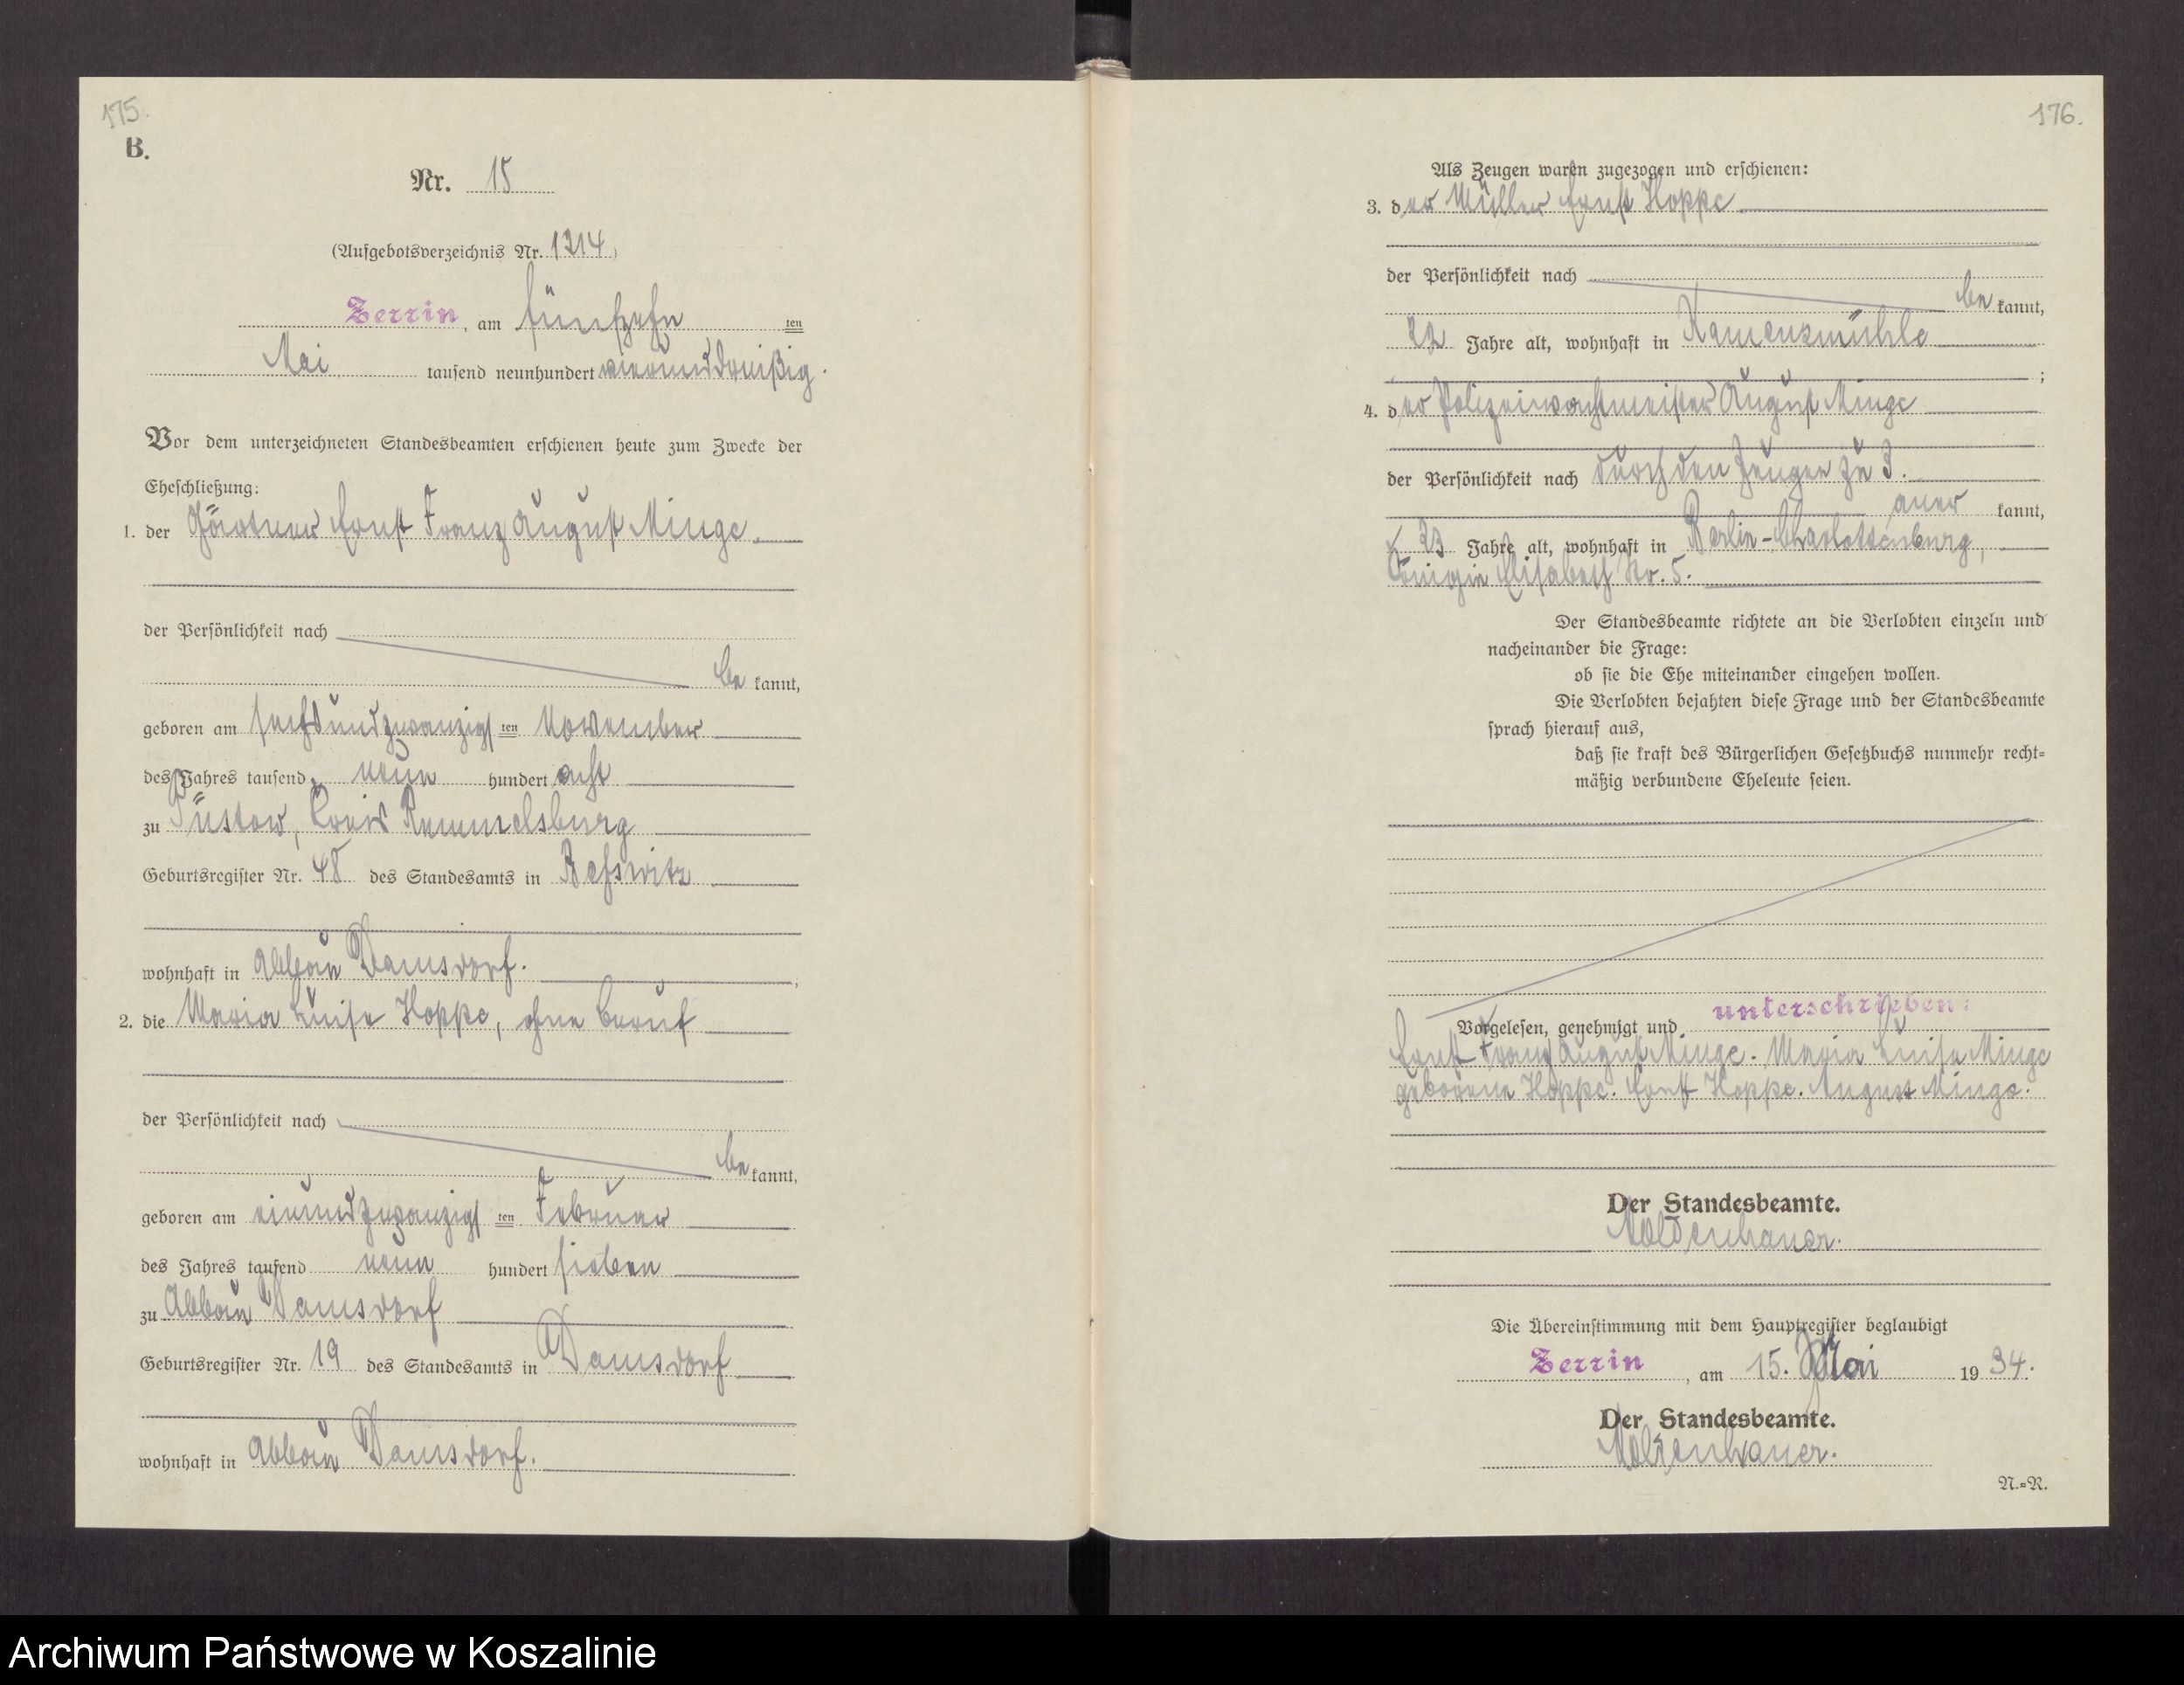 175.
B.
Nr. 15
(Aufgebotsverzeichnis Nr. 1314)
Zerrin, am fünfzehn ten
Mai tausend neunhundert vierunddreißig.
Vor dem unterzeichneten Standesbeamten erschienen heute zum Zwecke der
Eheschließung:
1. der Gärtner Ernst Franz August Minge
der Persönlichkeit nach
be kannt,
geboren am sechsundzwanzigs ten November
des Jahres tausend neun hundert acht
zu Püstow, Kreis Rummelsburg
Geburtsregister Nr. 48 des Standesamts in
wohnhaft in Abbau Damsdorf.
2. die Maria Luise Hoppe, ohne Beruf
der Persönlichkeit nach
be kannt,
geboren am einundzwanzigs ten Februar
des Jahres tausend neun hundert sieben
zu Abbau Damsdorf
Geburtsregister Nr. 19 des Standesamts in Damsdorf
wohnhaft in Abbau Damsdorf.
176.
Als Zeugen waren zugezogen und erschienen:
3. der Müller Ernst Hoppe
der Persönlichkeit nach
be kannt,
Jahre alt, wohnhaft in Kamenzmühle
;
4. der Polizeiwachtmeister August Minge
der Persönlichkeit nach durch den Zeugen zu 3.
aner kannt,
23 Jahre alt, wohnhaft in Berlin-Charlottenburg,
Königin Elisabeth Nr. 5.
Der Standesbeamte richtete an die Verlobten einzeln und
nacheinander die Frage:
ob sie die Ehe miteinander eingehen wollen.
Die Verlobten bejahten diese Frage und der Standesbeamte
sprach hierauf aus,
daß sie kraft des Bürgerlichen Gesetzbuchs nunmehr recht-
mäßig verbundene Eheleute seien.
Vorgelesen, genehmigt und unterschrieben:
Ernst Franz August Minge. Maria Luise Minge
geborene Hoppe. Ernst Hoppe. August Minge.
Der Standesbeamte.
Moldenhauer.
Die Übereinstimmung mit dem Hauptregister beglaubigt
Zerrin, am 15. Mai 1934.
Der Standesbeamte.
Moldenhauer.
N.-R.
Archiwum Państwowe w Koszalinie